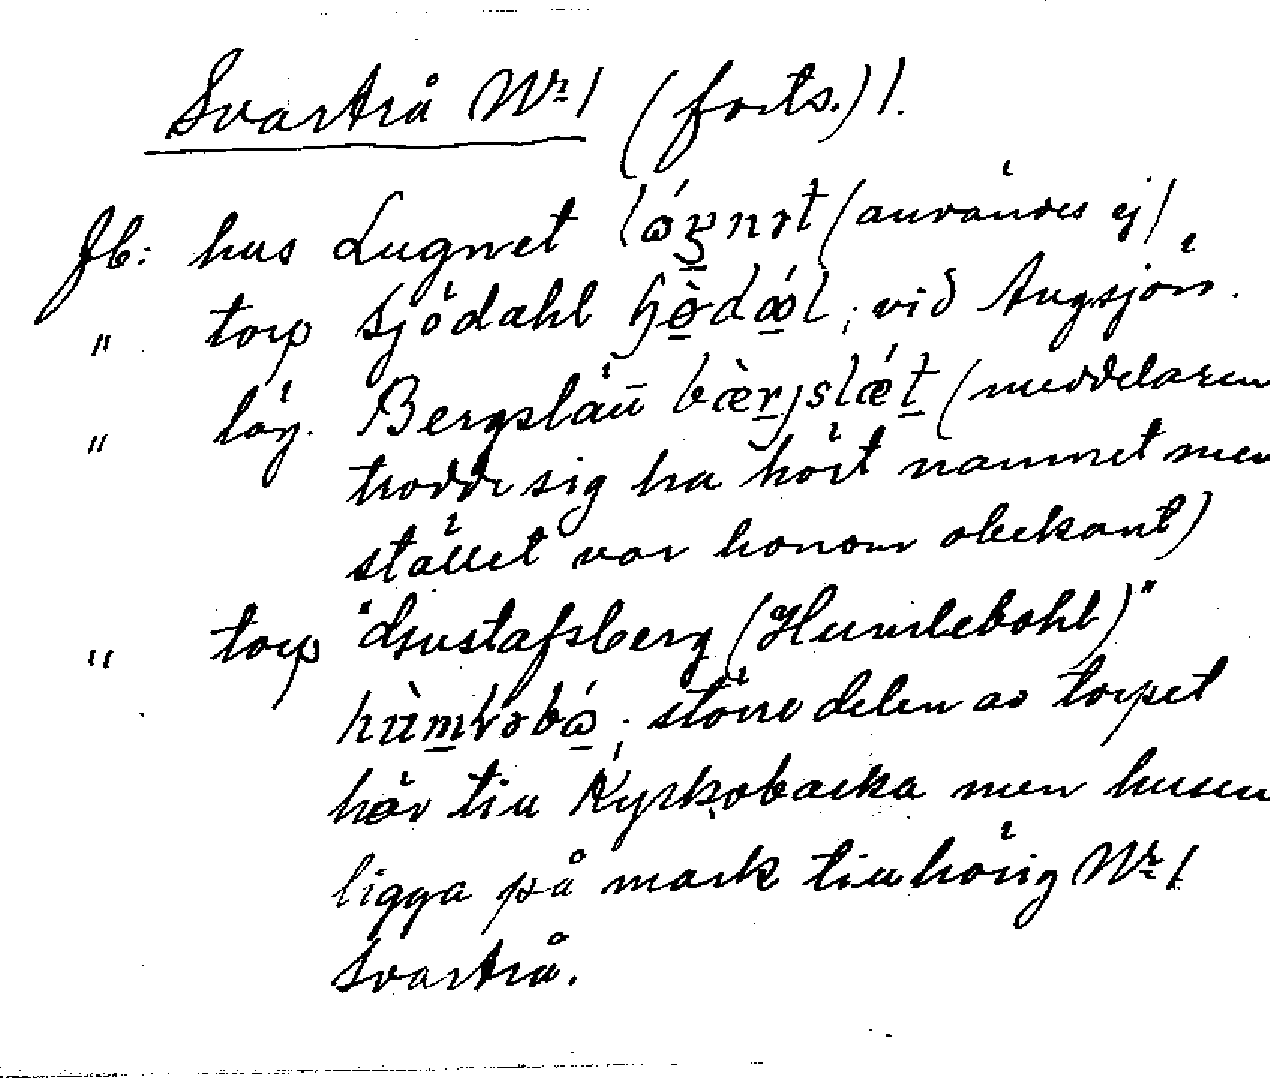 Svartrå Nr 1 (forts.) 1.
Jb: hus Lugnet (användes ej)
" torp Sjödahl ; vid Augsjön.
" läg. Bergslätt (meddelaren
trodde sig ha hört namnet men
stället var honom obekant)
" torp "Gustafsberg (Humlebohl)"
; större delen av torpet
hör till Kyrkobacka men husen
ligga på mark tillhörig Nr 1
Svartrå.